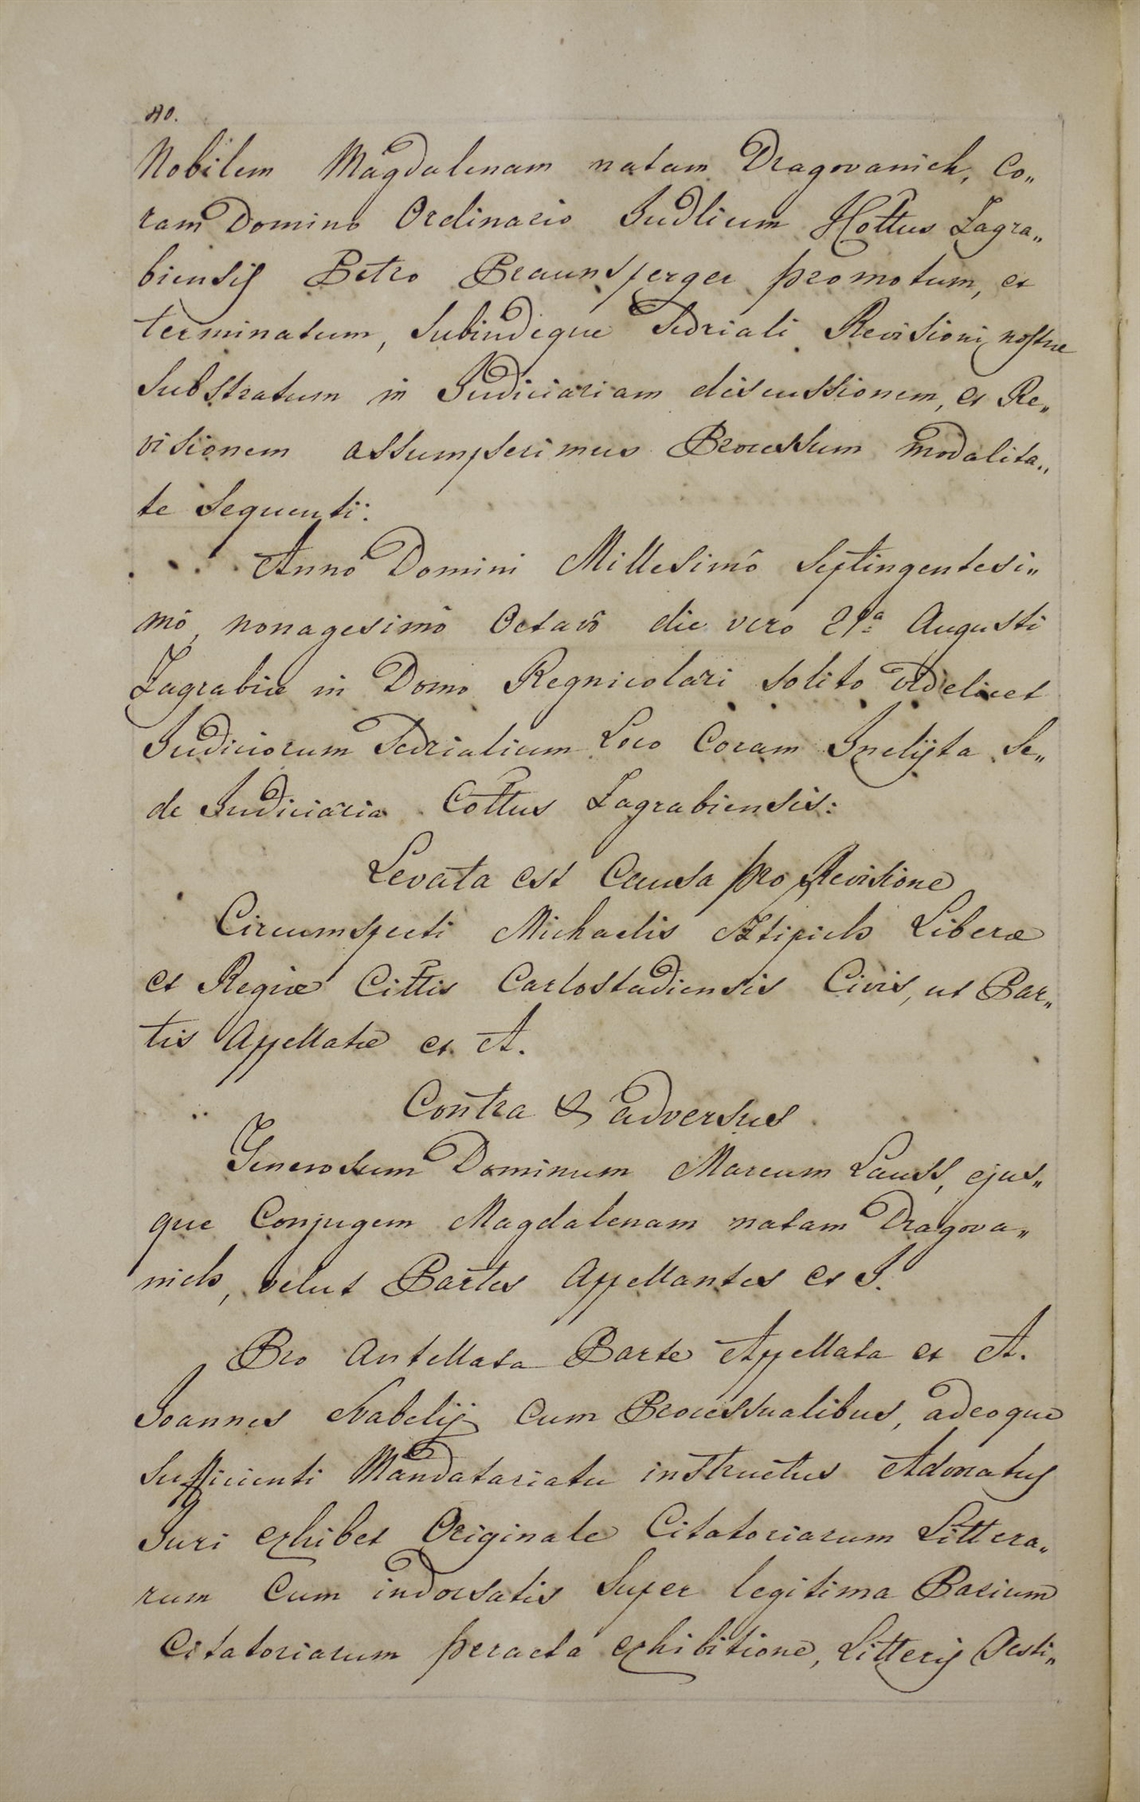 Nobilem Magdalenam natam Dragovanich, Co„
ram Domino Ordinario Judlium Cottus Zagra„
biensis Petro Braunsperger promotum, et
terminatum, Subindeque Sedriali Revisioni nostræ
Substratum in Judiciariam discussionem, et Re„
visionem assumpserimus Processum modalita„
te Sequenti:
Anno Domini Millesimô Septingentesi„
mô, nonagesimô Octavô die vero 21ª Augusti
Zagrabiæ in Domo Regnicolari solito videlicet
Judiciorum Sedrialium Loco Coram Inclÿta Se„
de Judiciaria Cottus Zagrabiensis:
Levata est Causa pro Revisione
Circumspecti Michaelis Sztipich Liberæ
et Regiæ Cittis Carlostadiensis Civis, ut Par„
tis Appellatæ et A.
Contra & adversus
Generosum Dominum Marcum Lauss, ejus„
que Conjugem Magdalenam natam Dragova„
nich, velut Partes Appellantes et I.
Pro Antellata Parte Appellata et A.
Joannes cum Processualibus, adeoque
Sufficienti Mandatariatu instructus Advocatus
Juri exhibet Originale Citatoriarum Littera„
rum Cum indorsatis Super legitima Parium
Citatoriarum peracta exhibitione, Litteris Testi„